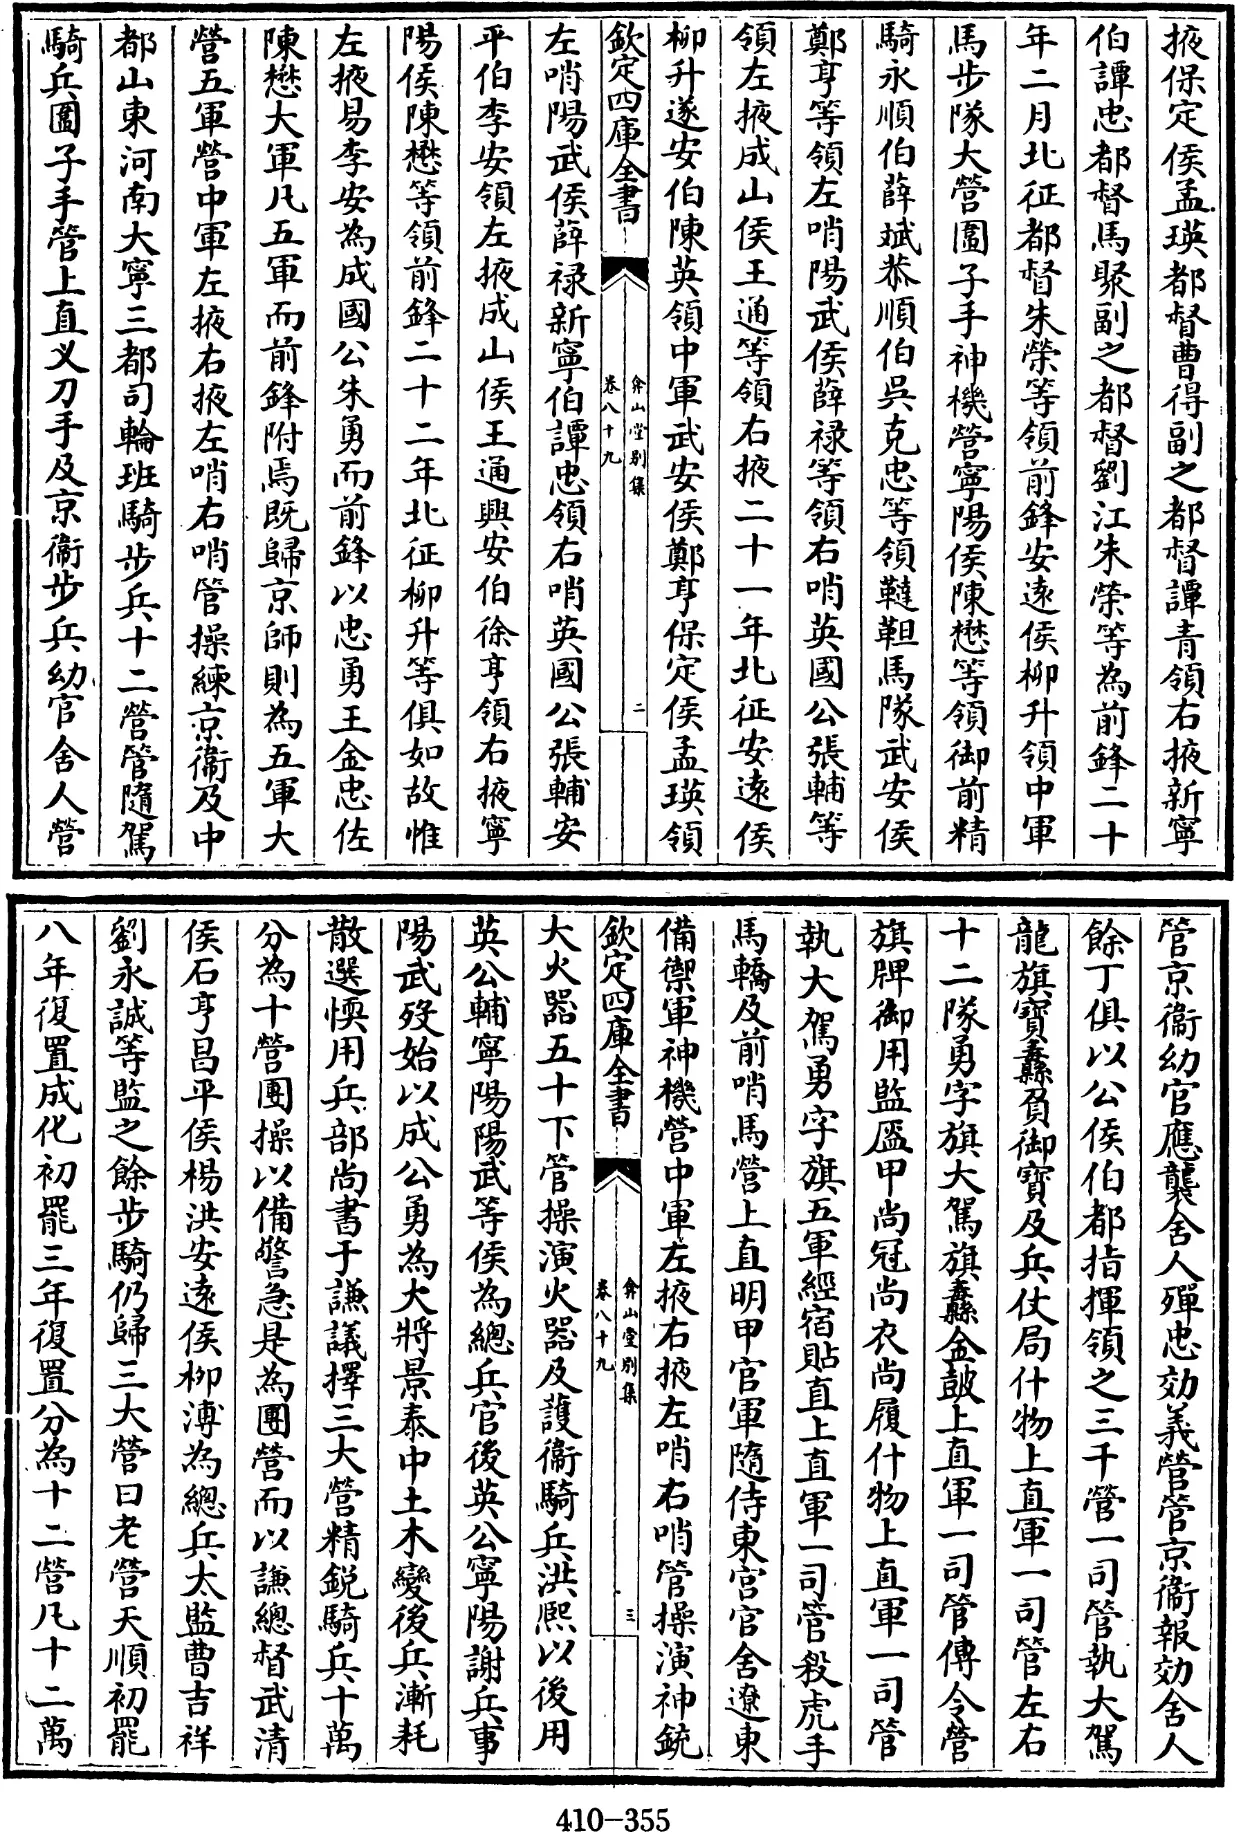 掖保定侯孟瑛都督曹得副之都督譚青領右掖新寧
伯譚忠都督馬聚副之都督劉江朱榮等為前鋒二十
年二月北征都督朱榮等領前鋒安遠侯柳升領中軍
馬步隊大營圍子手神機營寧陽侯陳懋等領御前精
騎永順伯薛斌恭順伯吳克忠等領韃靼馬隊武安侯
鄭亨等領左哨陽武侯薛祿等領右哨英國公張輔等
領左掖成山侯王通等領右掖二十一年北征安遠侯
柳升遂安伯陳英領中軍武安侯鄭亨保定侯孟瑛領
欽定四庫全書
弇山堂别集
卷八十九
二
左哨陽武侯薛祿新寧伯譚忠領右哨英國公張輔安
平伯李安領左掖成山侯王通興安伯徐亨領右掖寧
陽侯陳懋等領前鋒二十二年北征柳升等俱如故惟
左掖易李安為成國公朱勇而前鋒以忠勇王金忠佐
陳懋大軍凡五軍而前鋒附焉既歸京師則為五軍大
營五軍營中軍左掖右掖左哨右哨管操練京衞及中
都山東河南大寧三都司輪班騎步兵十二營管隨駕
騎兵圍子手管上直义刀手及京衞步兵幼官舍人營
管京衞幼官應襲舍人殫忠効義營管京衞報効舍人
餘丁俱以公侯伯都指揮領之三千營一司管執大駕
龍旗寶纛負御寶及兵仗局什物上直軍一司管左右
十二隊勇字旗大駕旗纛金鼓上直軍一司管傳令營
旗牌御用監盔甲尚冠尚衣尚履什物上直軍一司管
執大駕勇字旗五軍經宿貼直上直軍一司管殺虎手
馬轎及前哨馬營上直明甲官軍隨侍東宮官舍遼東
備禦軍神機營中軍左掖右掖左哨右哨管操演神銃
欽定四庫全書
弇山堂别集
卷八十九
三
大火器五十下管操演火器及護衞騎兵洪熙以後用
英公輔寧陽陽武等侯為總兵官後英公寧陽謝兵事
陽武歿始以成公勇為大將景泰中土木變後兵漸耗
散選愞用兵部尚書于謙議擇三大營精鋭騎兵十萬
分為十營團操以備警急是為團營而以謙總督武清
侯石亨昌平侯楊洪安遠侯柳溥為總兵太監曹吉祥
劉永誠等監之餘步騎仍歸三大營曰老營天順初罷
八年復置成化初罷三年復置分為十二營凡十二萬
410-355